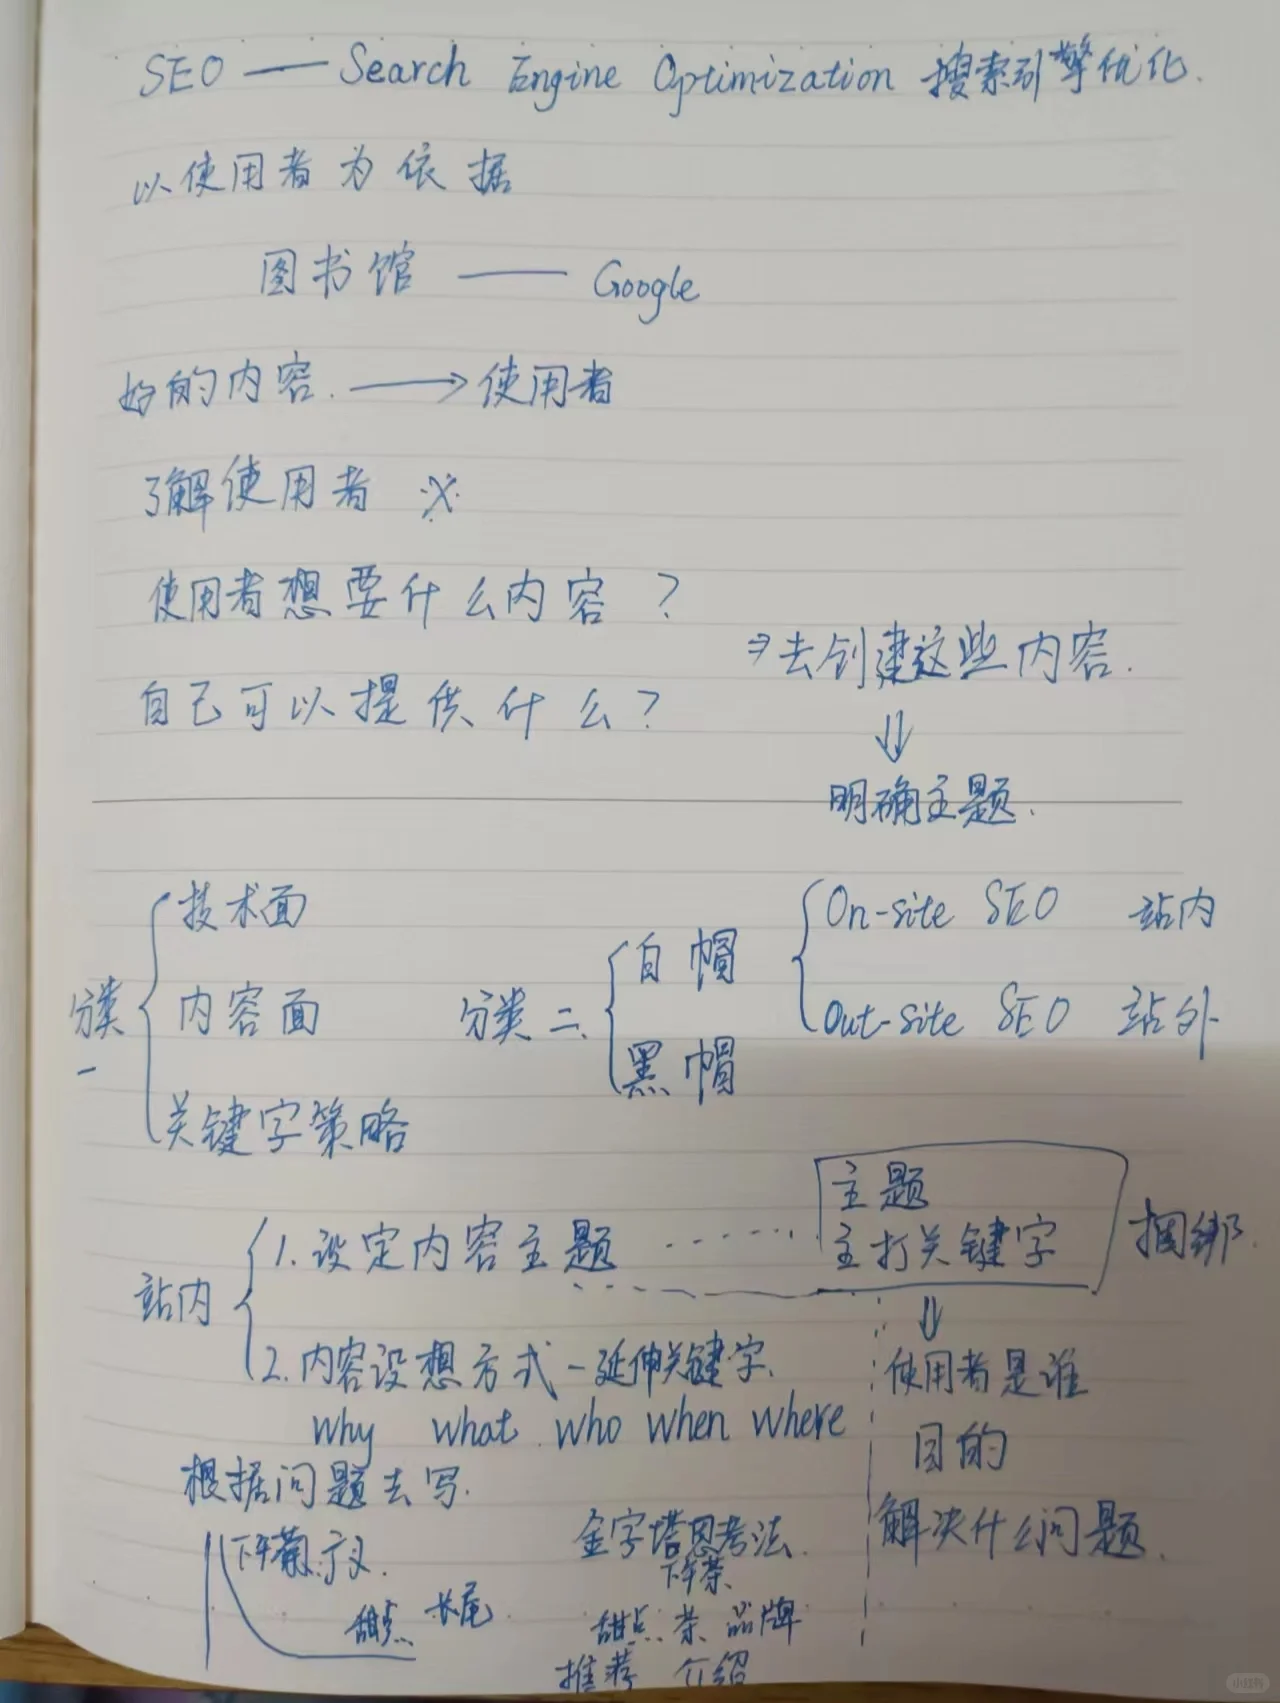 SEO —— Search Engine Optimization 搜索引擎优化.
以使用者为依据
图书馆 —— Google
好的内容. ——→ 使用者
了解使用者 ※
使用者想要什么内容?
自己可以提供什么?
⇒去创建这些内容.
⇓
明确主题.
分类一
技术面
内容面
关键字策略
分类二.
白帽
黑帽
On-site SEO 站内
Out-site SEO 站外
站内
1.设定内容主题
主题
主打关键字
捆绑.
2.内容设想方式-延伸关键字.
why what who when where
根据问题去写.
⇓
使用者是谁
目的
解决什么问题.
下午
甜点 长尾
金字塔思考法.
下午茶
甜点 茶 品牌
推荐 介绍
小红书